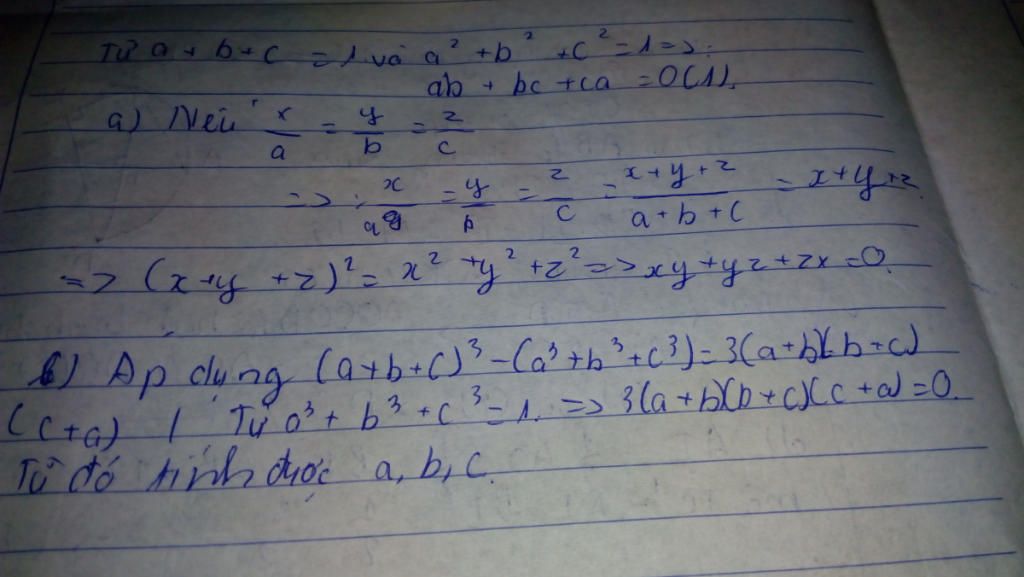 Từ a + b + c = 1 và a² + b² + c² = 1 =>:
ab + bc + ca = 0 (1).
a) Nếu x/a = y/b = z/c
=> : x/a = y/b = z/c = x+y+z/a+b+c = x+y+z.
=> (x+y+z)² = x² + y² + z² => xy+yz+zx=0.
b) Áp dụng (a+b+c)³ - (a³+b³+c³) = 3(a+b)(b+c)
(c+a) / Từ a³ + b³ + c³ = 1. => 3(a+b)(b+c)(c+a)=0.
Từ đó tính được a, b, c.